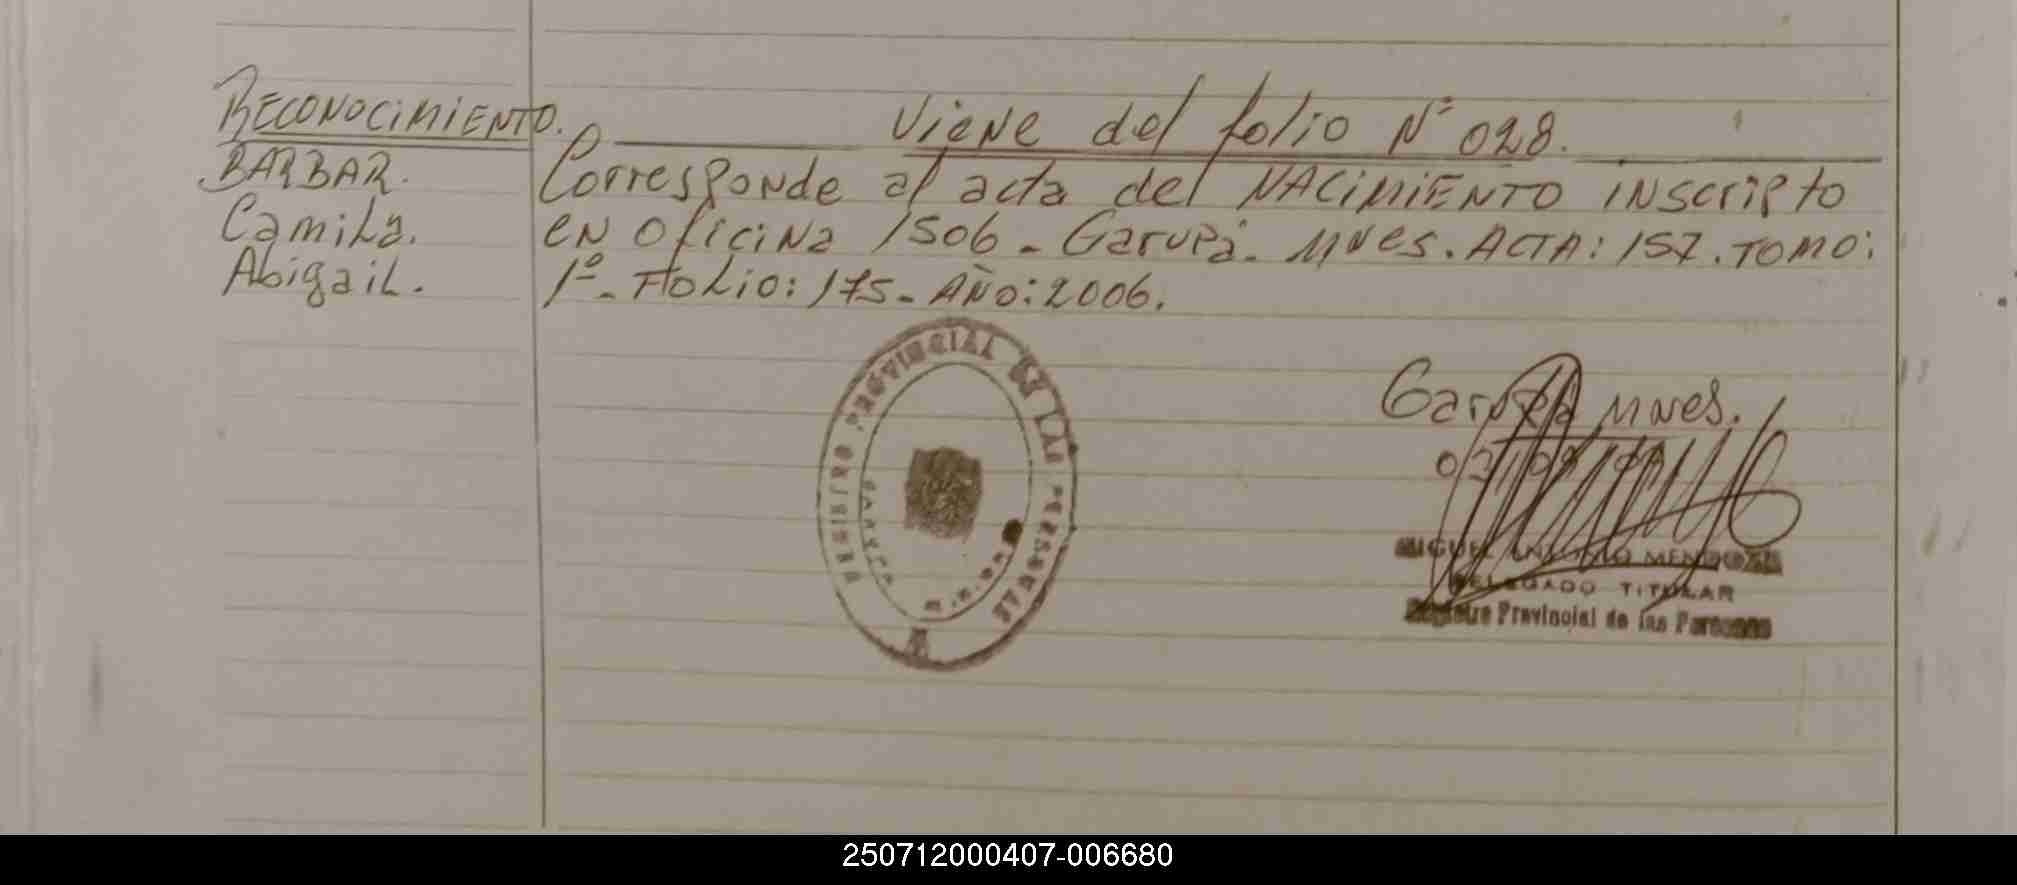 RECONOCIMIENTO.
BARBAR.
Camila.
Abigail.
Viene del folio N° 028.
Corresponde al acta del NACIMIENTO inscripto
en oficina 1506 - Garupá - Mnes. ACTA: 157. TOMO:
1º - Folio: 175 - AÑO: 2006.
REGISTRO PROVINCIAL DE LAS PERSONAS
Garupá Mnes.
MIGUEL ANTONIO MENDOZA
DELEGADO TITULAR
Registro Provincial de las Personas
250712000407-006680